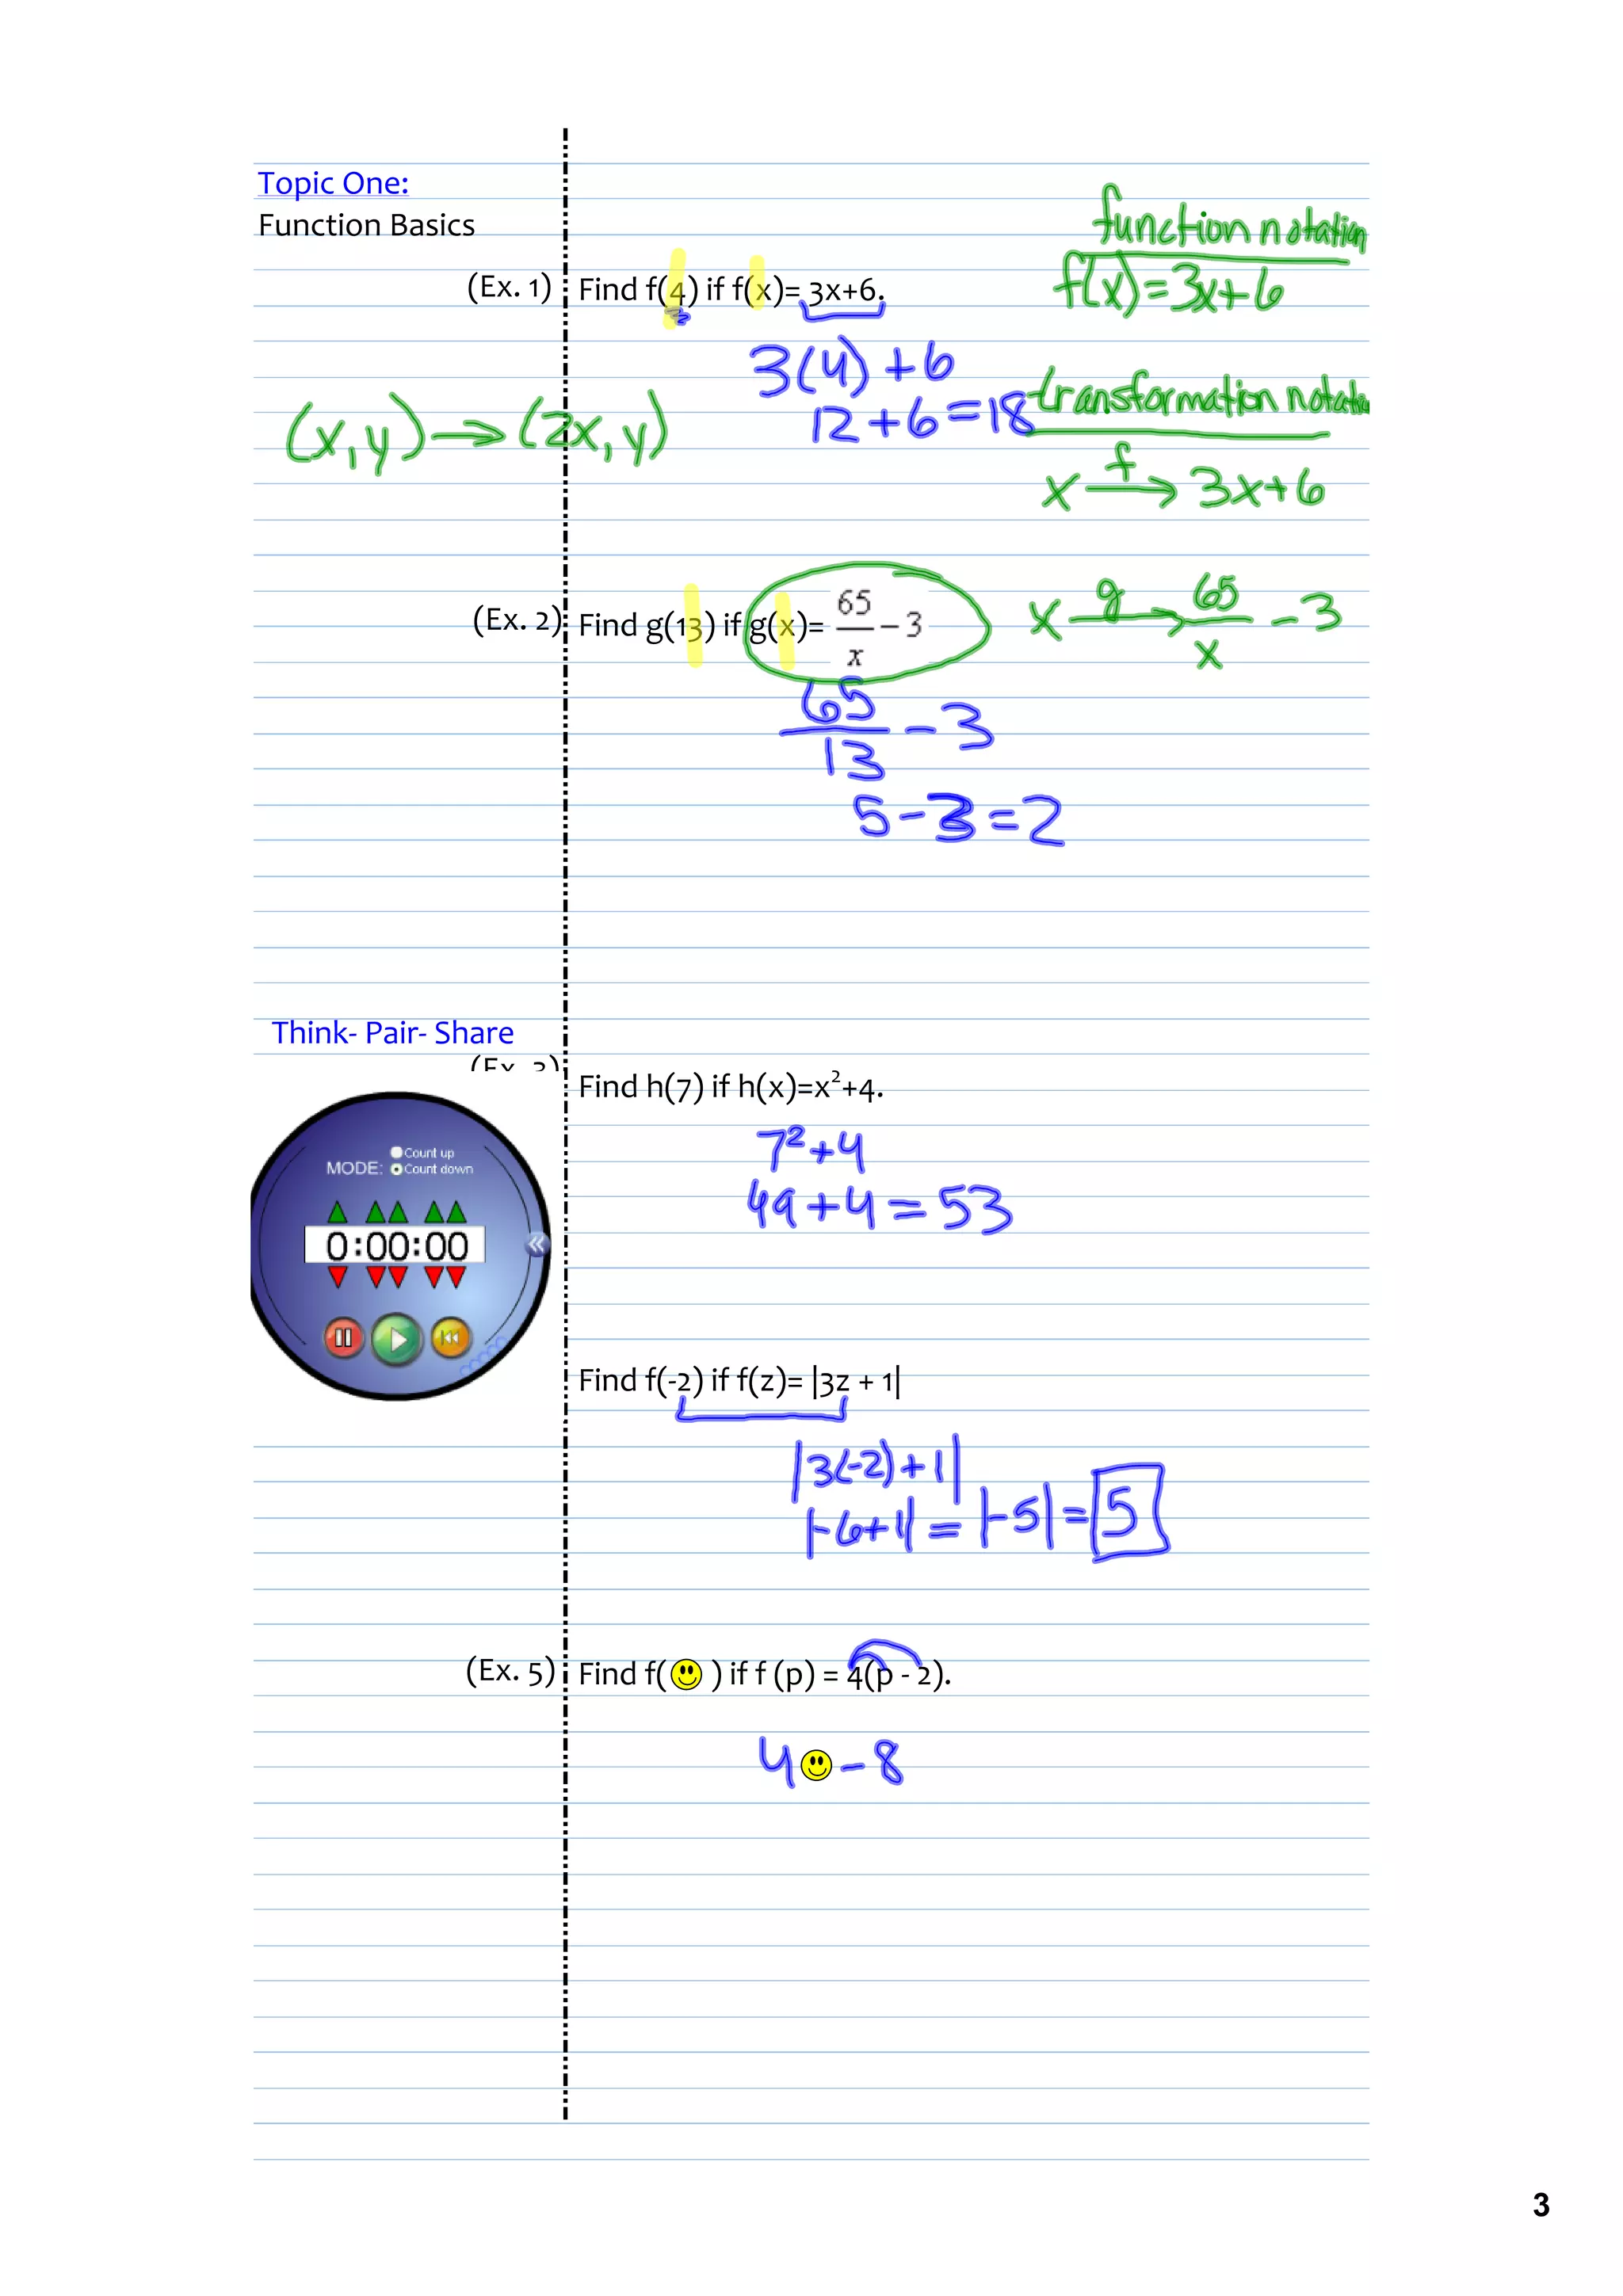 Topic One:
Function Basics
function notation
(Ex. 1) Find f(4) if f(x)= 3x+6.
f(x)=3x+6
3(4)+6
12+6=18
transformation notation
(x,y)→(2x,y)
x →f 3x+6
(Ex. 2) Find g(13) if g(x)= 65/x − 3
x →g 65/x − 3
65/13 − 3
5−3=2
Think- Pair- Share
Find h(7) if h(x)=x²+4.
7²+4
49+4=53
MODE: Count up
Count down
0:00:00
Find f(-2) if f(z)= |3z + 1|
|3(-2)+1|
|-6+1|=|-5|=5
(Ex. 5) Find f(🙂) if f (p) = 4(p - 2).
4🙂-8
3